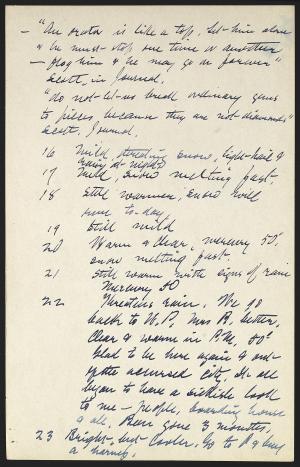 — "An orator is like a top, let him alone
& he must stop one time or another
— flog him & he may go on forever"
Scott, in Journal.
"do not let us break ordinary gems
to pieces, because they are not diamonds"
Scott, Journal.
16 Mild, snow, light hail &
rain at night
17 Mild, snow melting fast.
18 Still warmer, snow will
soon to-day,
19 Still mild
20 Warm & clear, mercury 50°
snow melting fast.
21 Still warm with signs of rain
Mercury 50
22 Threatens rain. We go
back to W. P., Mrs B. better,
Clear & warm in P.M. 50°
Glad to be here again & out
of the accursed City. It all
began to have a sickish look
to me — People, boarding house
& all. Been gone 3 months,
23 Bright but cooler. Go to P & buy
a harness.